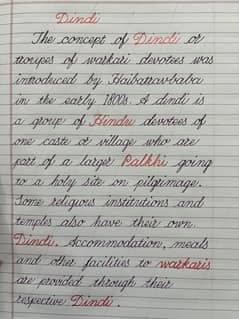 Dindi
The concept of Dindi or
troupes of warkari devotees was
introduced by Haibatravbaba
in the early 1800s. A dindi is
a group of Hindu devotees of
one caste or village who are
part of a larger Palkhi going
to a holy site on pilgrimage.
Some religious institutions and
temples also have their own
Dindi. Accommodation, meals
and other facilities to warkaris
are provided through their
respective Dindi.